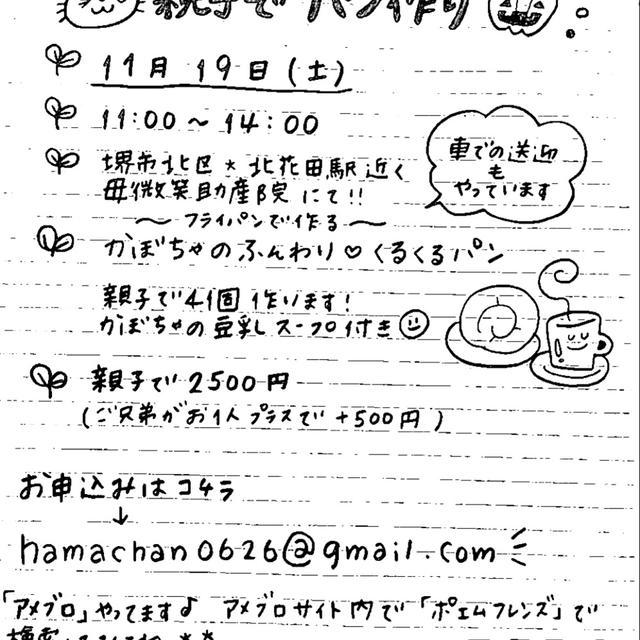 親子でパン作り
11月 19日 (土)
11:00 ~ 14:00
車での送迎
も
やっています
堺市北区 * 北花田駅近く
母微笑助産院 にて!!
~ フライパンで作る ~
かぼちゃのふんわり♡くるくるパン
親子で4個 作います!
かぼちゃの豆乳スープ付き☺
親子で 2500円
(ご兄弟がお1人プラスで +500円)
お申込みはコチラ
↓
hamachan0626@gmail.com
「アメブロ」やってます♪ アメブロサイト内で「ポエムフレンズ」で
検索